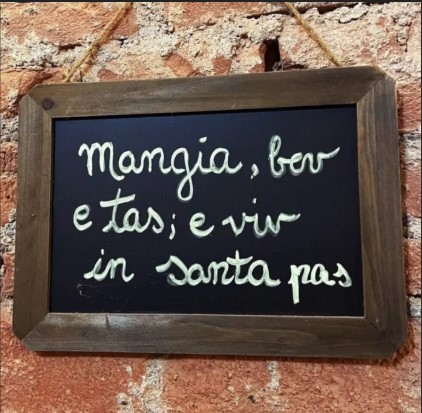 Mangia, bev
e tas; e viv
in santa pas